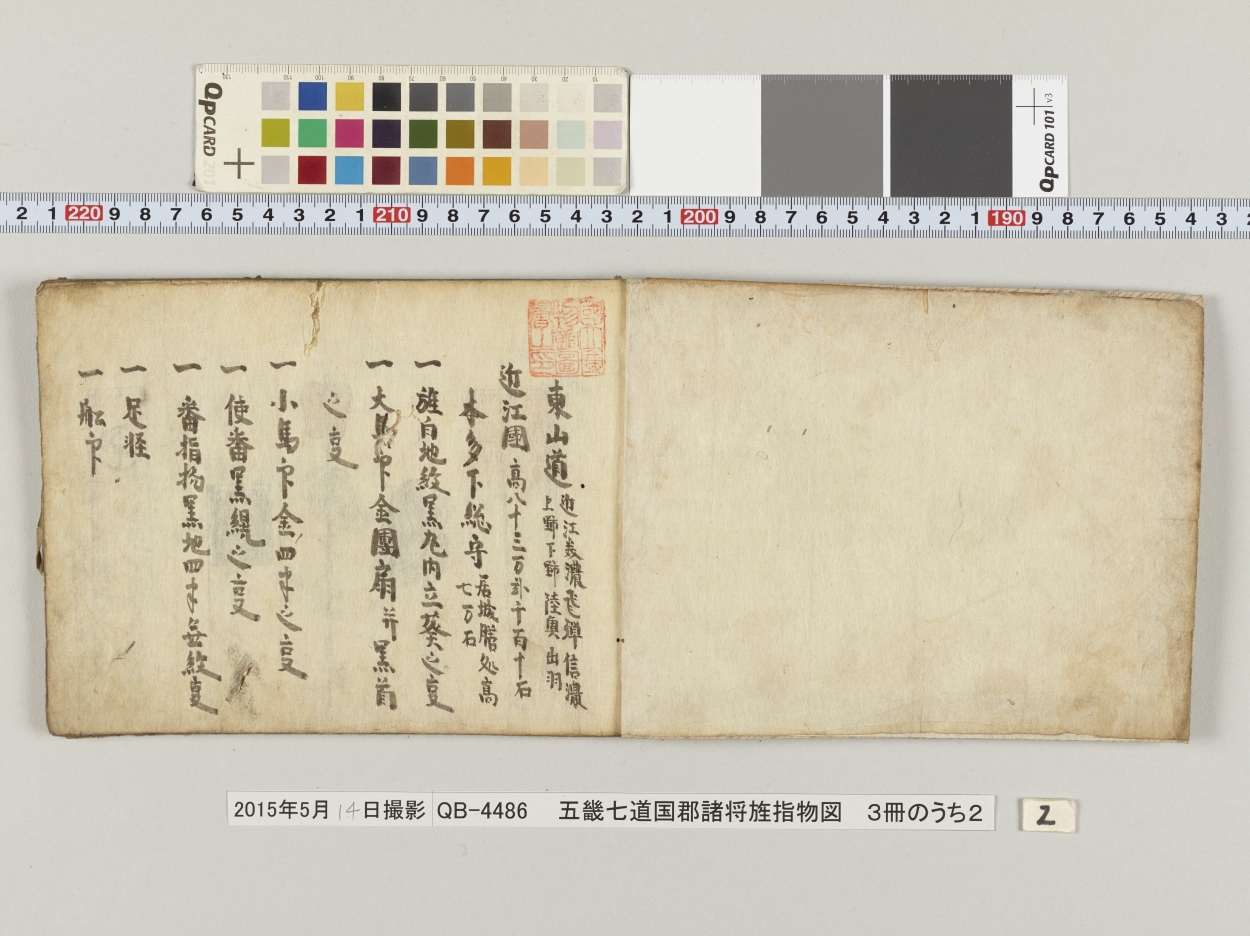 QPCARD 201
QPCARD 101 v3
2 1 220 9 8 7 6 5 4 3 2 1 210 9 8 7 6 5 4 3 2 1 200 9 8 7 6 5 4 3 2 1 190 9 8 7 6 5 4 3 2
東山道
近江美濃飛騨信濃
上野下野陸奥出羽
近江國 高八十三万弐千百十石
本多下総守
居城膳処高
七万石
一 旌白地紋黒丸内立葵之㕝
一 大馬印金團扇并黒首
之㕝
一 小馬印金四半之㕝
一 使番黒縨之㕝
一 番指物黒地四半無紋㕝
一 足軽
一 船印
2015年5月14日撮影 QB-4486 五畿七道国郡諸将旌指物図 3冊のうち2
2